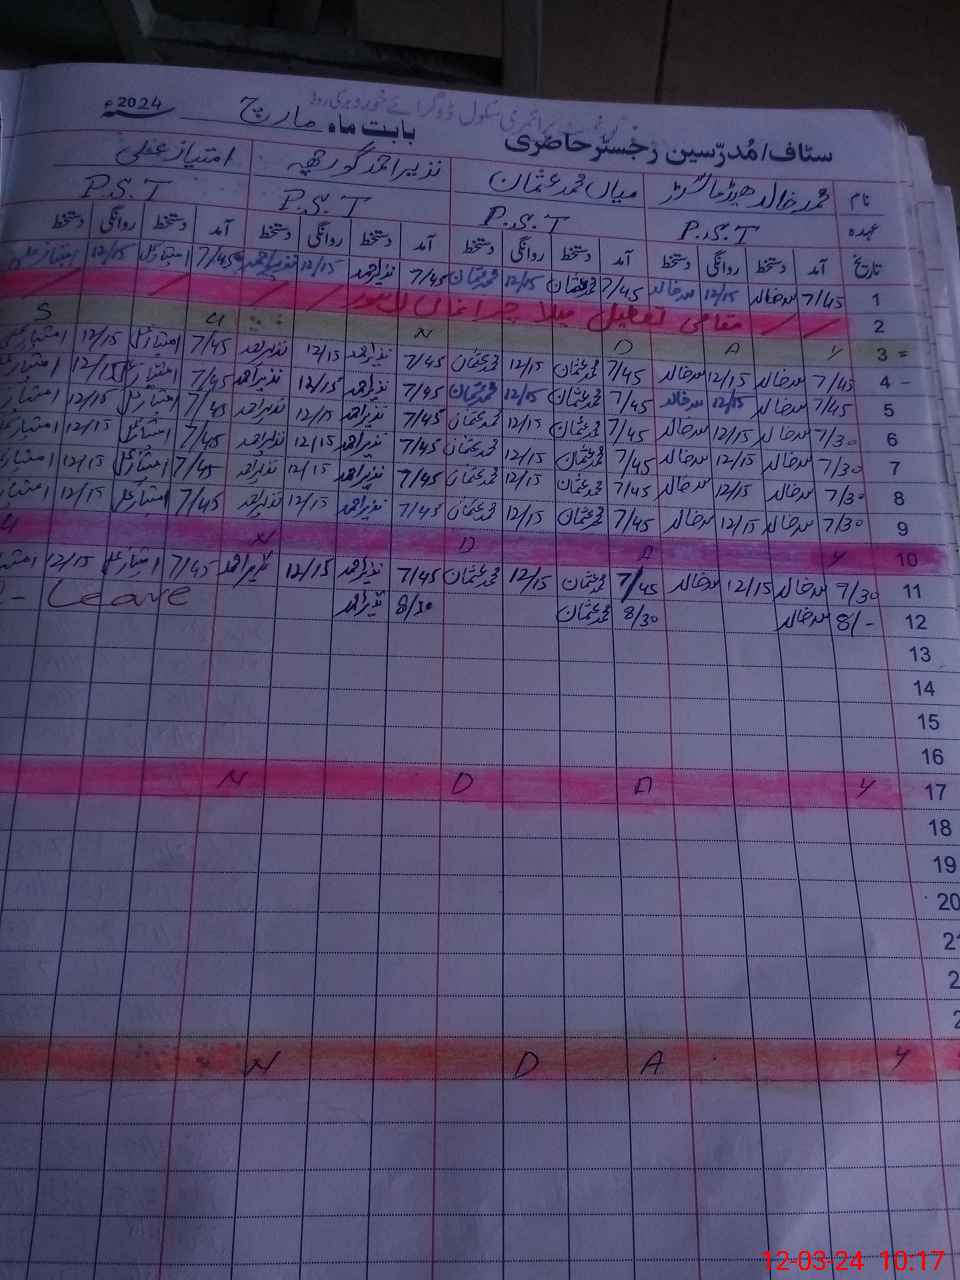 سٹاف/مُدرّسین رجسٹر حاضری بابت ماہ مارچ سنہ 2024ء
نام محمد خالد ہیڈ ماسٹر میاں محمد عثمان نذیر احمد گورچھہ امتیاز علی
عہدہ P.S.T P.S.T P.S.T P.S.T
تاریخ آمد دستخط روانگی دستخط آمد دستخط روانگی دستخط آمد دستخط روانگی دستخط آمد دستخط روانگی دستخط
1 7/45 محمد خالد 12/15 محمد خالد 7/45 محمد عثمان 12/15 محمد عثمان 7/45 نذیر احمد 12/15 نذیر احمد 7/45 امتیاز علی 12/15 امتیاز علی
2 مقامی تعطیل میلا چراغاں لاہور
3 = Y A D N U S
4 - 7/45 محمد خالد 12/15 محمد خالد 7/45 محمد عثمان 12/15 محمد عثمان 7/45 نذیر احمد 12/15 نذیر احمد 7/45 امتیاز علی 12/15 امتیاز علی
5 7/45 محمد خالد 12/15 محمد خالد 7/45 محمد عثمان 12/15 محمد عثمان 7/45 نذیر احمد 12/15 نذیر احمد 7/45 امتیاز علی 12/15 امتیاز
6 7/30 محمد خالد 12/15 محمد خالد 7/45 محمد عثمان 12/15 محمد عثمان 7/45 نذیر احمد 12/15 نذیر احمد 7/45 امتیاز علی 12/15 امتیاز
7 7/30 محمد خالد 12/15 محمد خالد 7/45 محمد عثمان 12/15 محمد عثمان 7/45 نذیر احمد 12/15 نذیر احمد 7/45 امتیاز علی 12/15 امتیاز
8 7/30 محمد خالد 12/15 محمد خالد 7/45 محمد عثمان 12/15 محمد عثمان 7/45 نذیر احمد 12/15 نذیر احمد 7/45 امتیاز علی 12/15 امتیاز
9 7/30 محمد خالد 12/15 محمد خالد 7/45 محمد عثمان 12/15 محمد عثمان 7/45 نذیر احمد 12/15 نذیر احمد 7/45 امتیاز علی 12/15 امتیاز
10 Y A D N U
11 7/30 محمد خالد 12/15 محمد خالد 7/45 محمد عثمان 12/15 محمد عثمان 7/45 نذیر احمد 12/15 نذیر احمد 7/45 امتیاز علی 12/15 امتیاز
12 8/- محمد خالد 8/30 محمد عثمان 8/30 نذیر احمد Leave
13
14
15
16
17 Y A D N
18
19
20
Y A D N
12-03-24 10:17